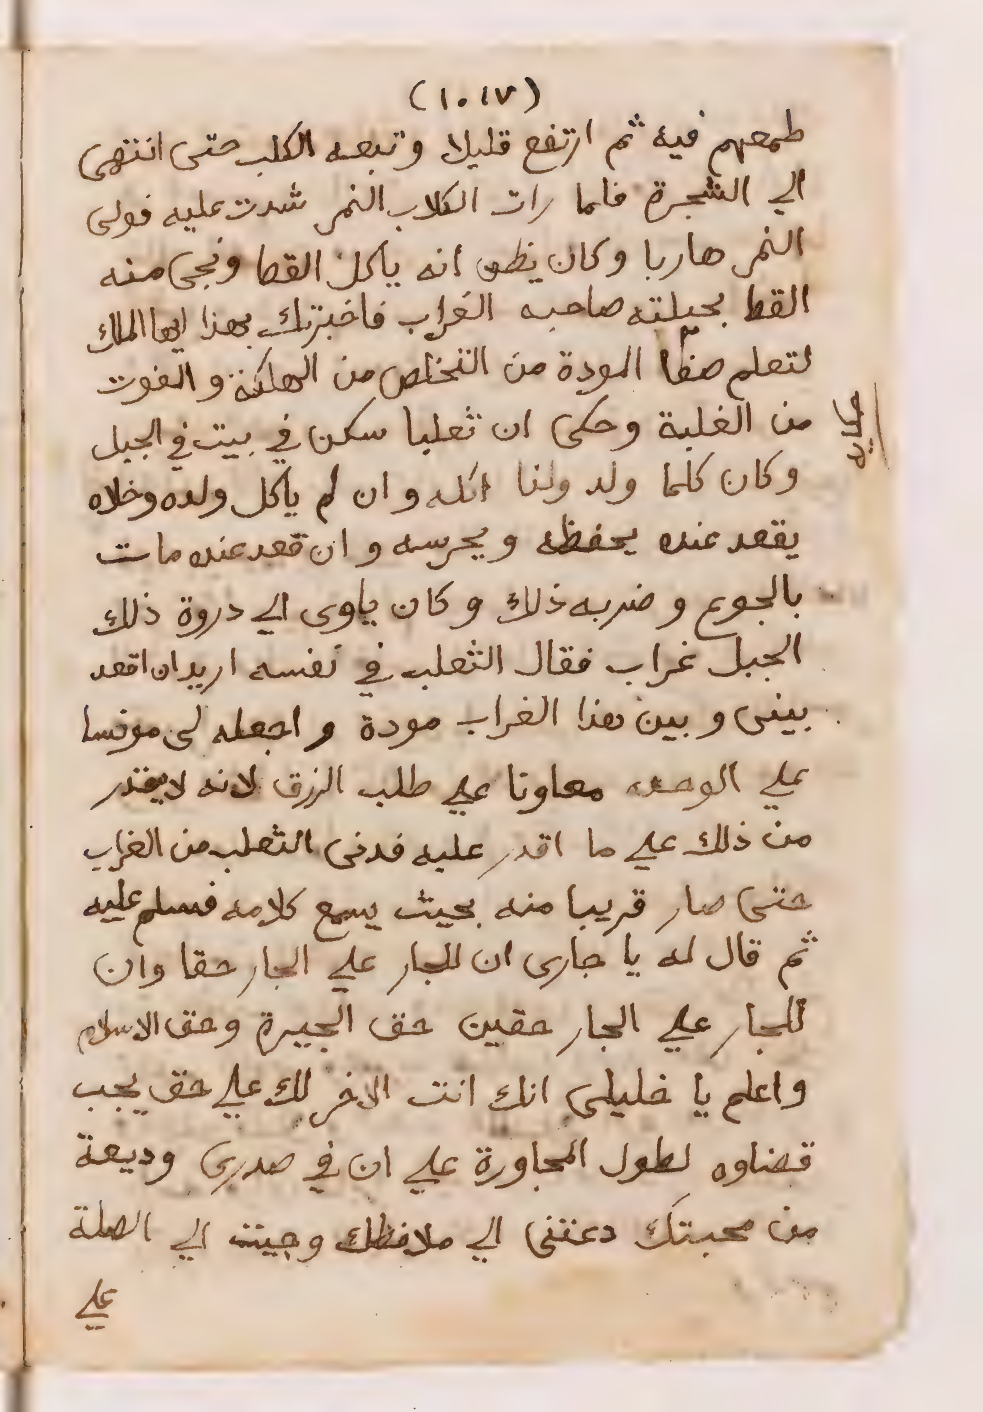 (١٠١٧)
طمعهم فيه ثم ارتفع قليلا وتبعه الكلب حتى انتهى
الي الشجرة فلما رات الكلاب النمر شدت عليه فولى
النمر هاربا وكان يظن انه ياكل القط ونجى منه
القط بحيلته صاحبه الغراب فاخبرتك بهذا ايها الملك
لتعلم صفا المودة من التخلص من الهلكة و الفوت
من الغلبة وحكى ان ثعلبا سكن في بيت في الجبل
حكاية
وكان كلما ولد ولدا اكله وان لم ياكل ولده وخلاه
يقعد عنده يحفظه ويحرسه وان قعد عنده مات
بالجوع وضربه ذلك وكان ياوى الي دروة ذلك
الجبل غراب فقال الثعلب في نفسه اريد ان اقعد
بينى وبين هذا الغراب مودة واجعله لى مونسا
علي الوحده معاونا علي طلب الرزق لانه لا يقدر
من ذلك علي ما اقدر عليه فدنى الثعلب من الغراب
حتى صار قريبا منه بحيث يسمع كلامه فسلم عليه
ثم قال له يا جارى ان للجار علي الجار حقا وان
للجار علي الجار حقين حق الجيرة وحق الاسلام
واعلم يا خليلى انك انت الاخر لك علي حق يجب
قضاوه لطول المجاورة علي ان في صدرى وديعة
من محبتك دعتنى الي ملافظك وجيت الي الصلة
علي